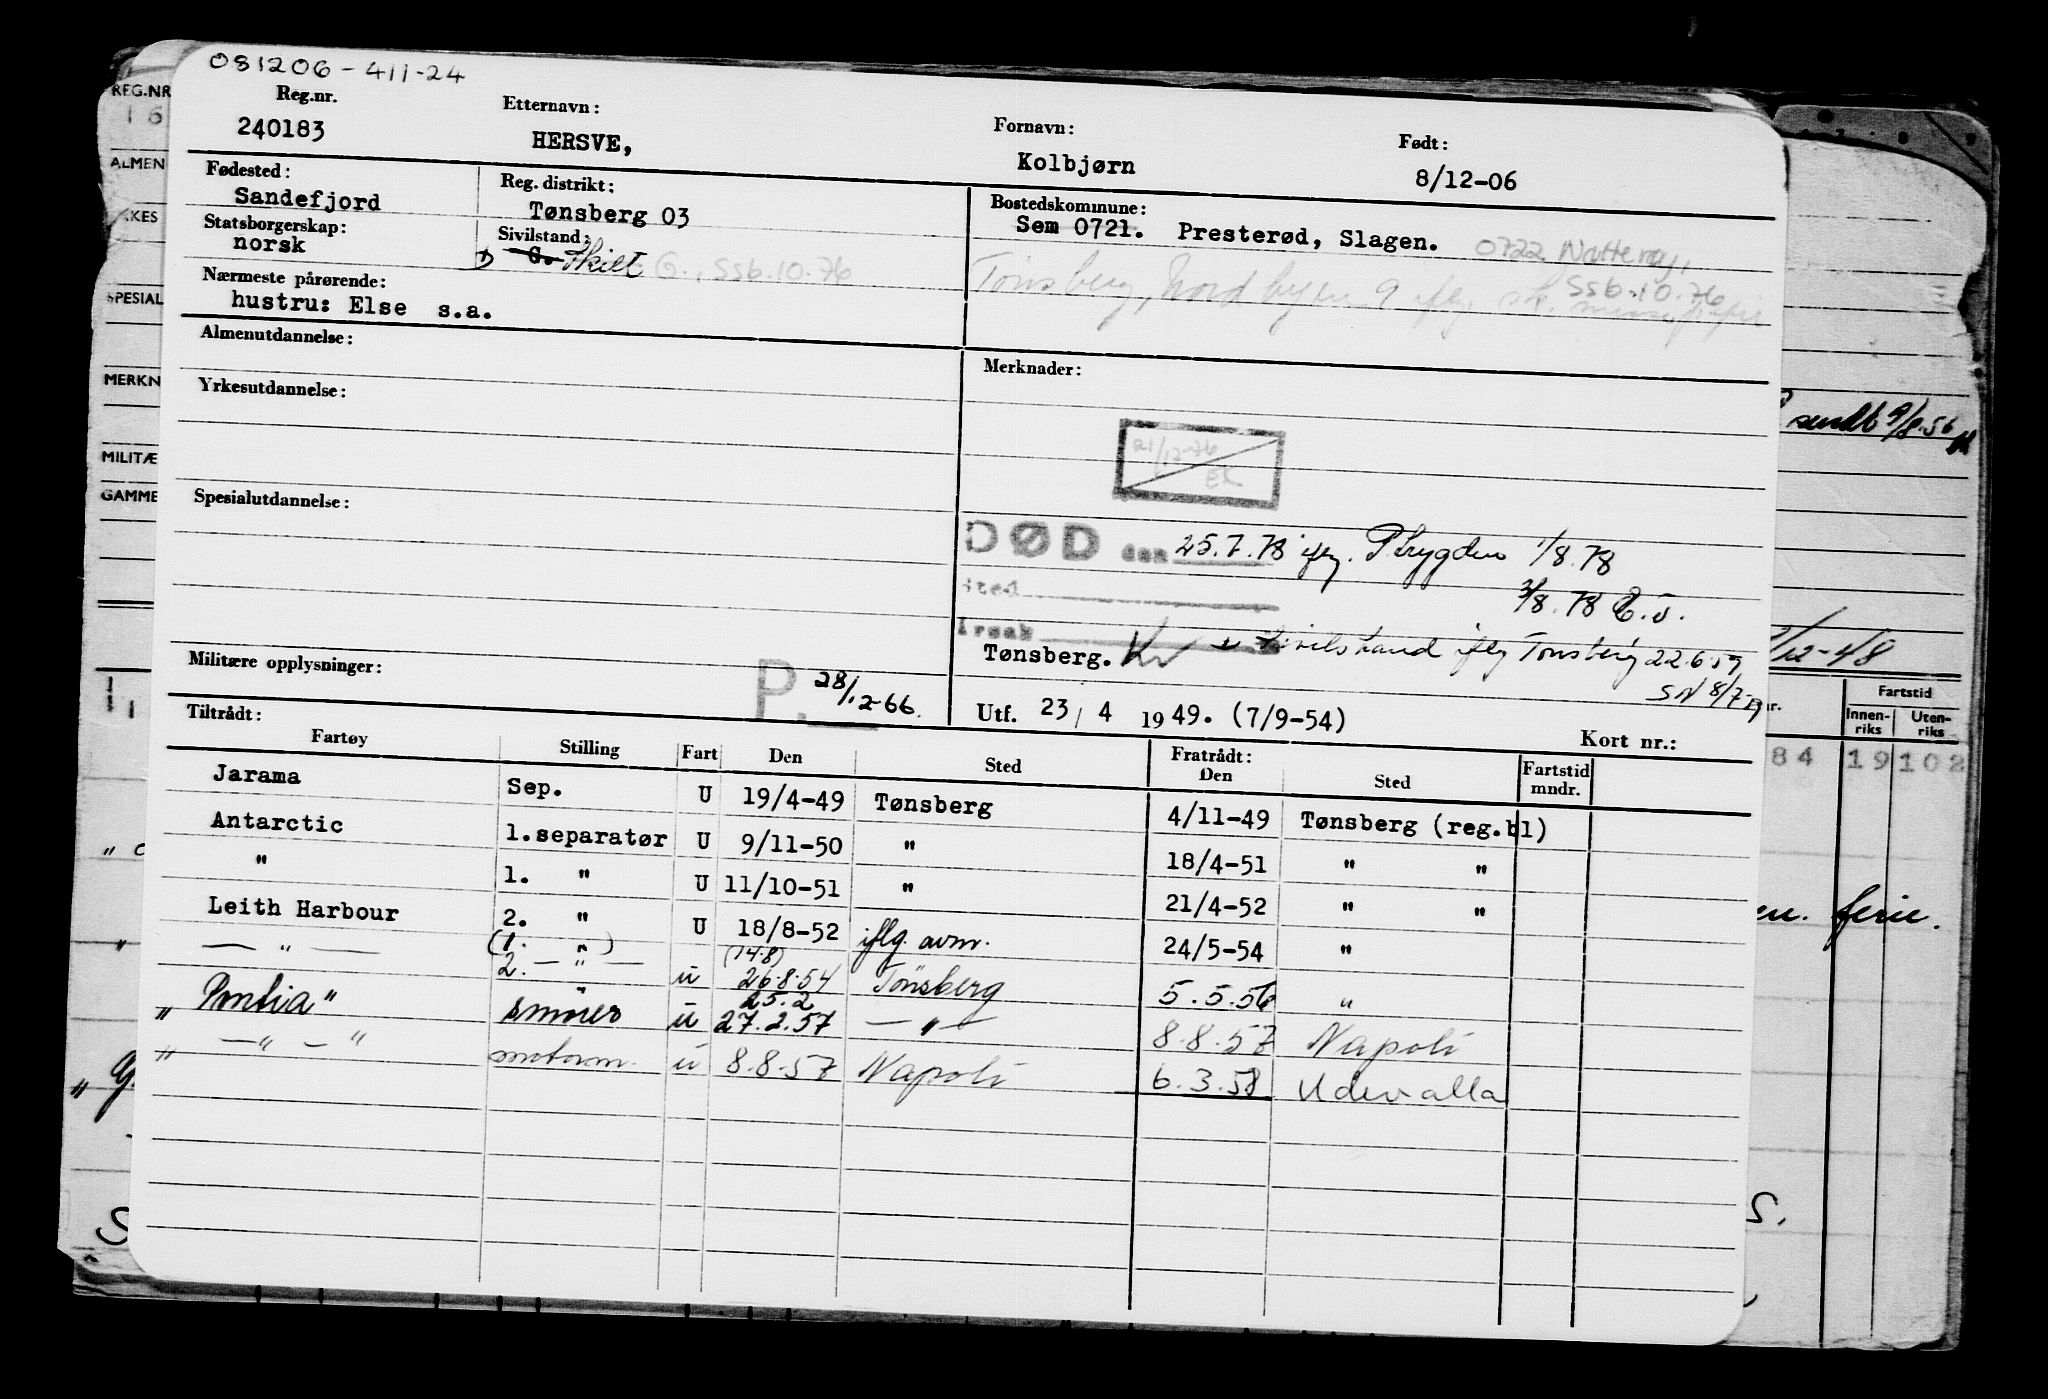 081206-411-24
REG.NR
Reg.nr. Etternavn: Fornavn: Født:
16 240183 HERSVE, Kolbjørn 8/12-06
ALMEN Fødested: Reg. distrikt: Bostedskommune:
Sandefjord Tønsberg 03 Sem 0721. Presterød, Slagen. 0722 Nøtterøy,
Statsborgerskap: Sivilstand: Ssb.10.76
norsk 1) G. skilt G., Ssb.10.76 Tønsberg, Nordbyen 9 iflg.
Nærmeste pårørende:
hustru: Else s.a.
SPESIAL Almenutdannelse: Merknader:
MERKN Yrkesutdannelse:
sendt 9/8-56
21/12-76
EK
MILITÆ
GAMME Spesialutdannelse:
DØD den 25.7.78 iflg. P.trygden 1/8.78
sted 3/8.78
årsak
Tønsberg. 1) Sivilstand iflg Tønsberg 22.6.59
SN 8/7-59
/12-48
Militære opplysninger: P. 28/12-66. Utf. 23/4 1949. (7/9-54) Kort nr.:
Tiltrådt: Fratrådt: Fartstid
Fartøy Stilling Fart Den Sted Den Sted Fartstid mndr. Innen-riks Uten-riks
84 19 102
Jarama Sep. U 19/4-49 Tønsberg 4/11-49 Tønsberg (reg.bl)
Antarctic 1.separatør U 9/11-50 " 18/4-51 " "
" 1. " U 11/10-51 " 21/4-52 " "
Leith Harbour 2. " U 18/8-52 iflg. avm. 24/5-54 "
— " — (1. " ) 2. — " — u (14.8) 26.8.54 Tønsberg 5.5.56 "
" Pontia " smører u 25.2 27.2.57 — " — 8.8.57 Napoli
" — " — " motorm. u 8.8.57 Napoli 6.3.58 Udevalla
ferie.